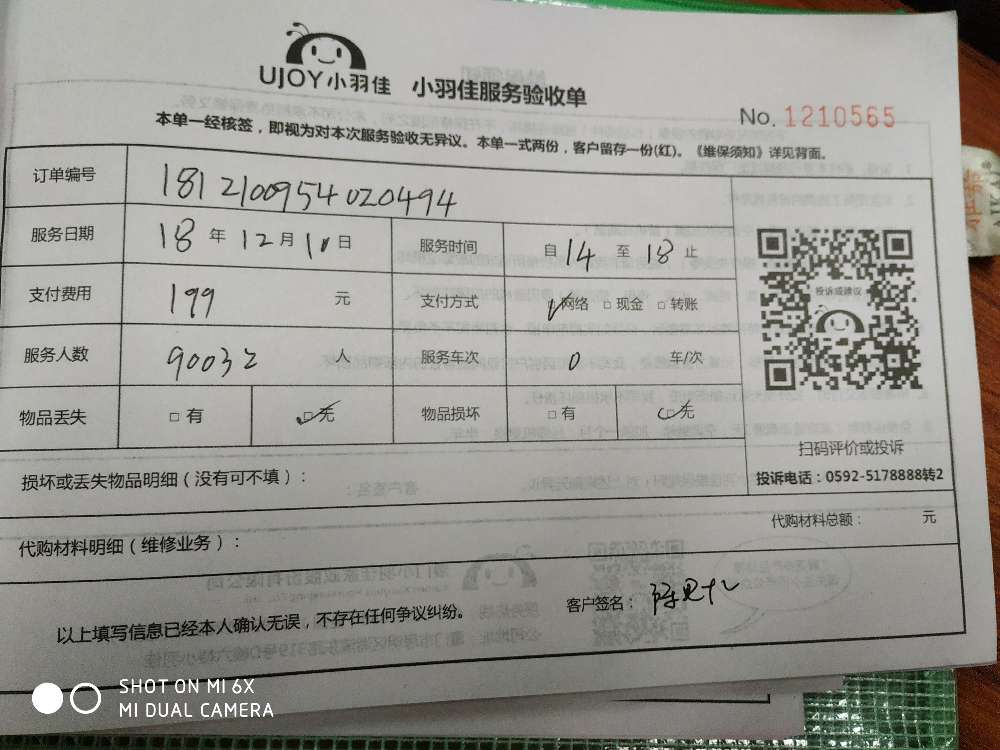 UJOY小羽佳 小羽佳服务验收单
No. 1210565
本单一经核签，即视为对本次服务验收无异议。本单一式两份，客户留存一份(红)。《维保须知》详见背面。
订单编号 1812100954020494
服务日期 18 年 12 月 10 日 服务时间 自 14 至 18 止
支付费用 199 元 支付方式 ☑网络 □现金 □转账
服务人数 90032 人 服务车次 0 车/次
物品丢失 □有 ☑无 物品损坏 □有 ☑无
投诉或建议
扫码评价或投诉
投诉电话：0592-5178888转2
损坏或丢失物品明细（没有可不填）：
代购材料总额： 元
代购材料明细（维修业务）：
以上填写信息已经本人确认无误，不存在任何争议纠纷。
客户签名：
SHOT ON MI 6X
MI DUAL CAMERA